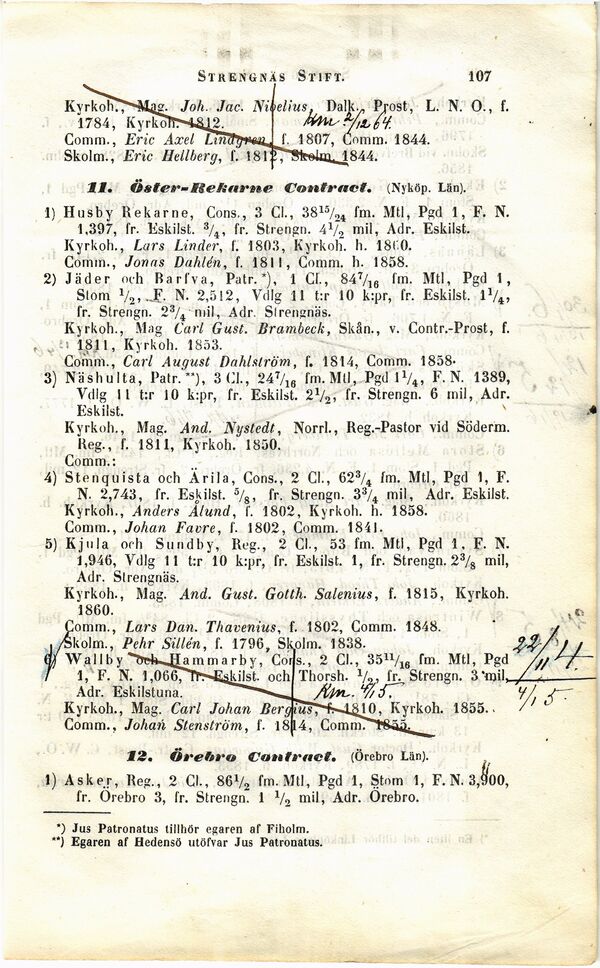 STRENGNÄS STIFT. 107
Kyrkoh., Mag. Joh. Jac. Nibelius, Dalk., Prost, L. N. O., f.
1784, Kyrkoh. 1812. km 2/12 64.
Comm., Eric Axel Lindgren, f. 1807, Comm. 1844.
Skolm., Eric Hellberg, f. 1812, Skolm. 1844.
11. Öster-Rekarne Contract. (Nyköp. Län).
1) Husby Rekarne, Cons., 3 Cl., 38 15/24 fm. Mtl, Pgd 1, F. N.
1,397, fr. Eskilst. 3/4, fr. Strengn. 4 1/2 mil, Adr. Eskilst.
Kyrkoh., Lars Linder, f. 1803, Kyrkoh. h. 1860.
Comm., Jonas Dahlén, f. 1811, Comm. h. 1858.
2) Jäder och Barfva, Patr. *), 1 Cl., 84 7/16 fm. Mtl, Pgd 1,
Stom 1/2, F. N. 2,512, Vdlg 11 t:r 10 k:pr, fr. Eskilst. 1 1/4,
fr. Strengn. 2 3/4 mil, Adr. Strengnäs.
Kyrkoh., Mag Carl Gust. Brambeck, Skån., v. Contr.-Prost, f.
1811, Kyrkoh. 1853.
Comm., Carl August Dahlström, f. 1814, Comm. 1858.
3) Näshulta, Patr. **), 3 Cl., 24 7/16 fm. Mtl, Pgd 1 1/4, F. N. 1389,
Vdlg 11 t:r 10 k:pr, fr. Eskilst. 2 1/2, fr. Strengn. 6 mil, Adr.
Eskilst.
Kyrkoh., Mag. And. Nystedt, Norrl., Reg.-Pastor vid Söderm.
Reg., f. 1811, Kyrkoh. 1850.
Comm.:
4) Stenquista och Ärila, Cons., 2 Cl., 62 3/4 fm. Mtl, Pgd 1, F.
N. 2,743, fr. Eskilst. 5/8, fr. Strengn. 3 3/4 mil, Adr. Eskilst.
Kyrkoh., Anders Ålund, f. 1802, Kyrkoh. h. 1858.
Comm., Johan Favre, f. 1802, Comm. 1841.
5) Kjula och Sundby, Reg., 2 Cl., 53 fm. Mtl, Pgd 1, F. N.
1,946, Vdlg 11 t:r 10 k:pr, fr. Eskilst. 1, fr. Strengn. 2 3/8 mil,
Adr. Strengnäs.
Kyrkoh., Mag. And. Gust. Gotth. Salenius, f. 1815, Kyrkoh.
1860.
Comm., Lars Dan. Thavenius, f. 1802, Comm. 1848.
Skolm., Pehr Sillén, f. 1796, Skolm. 1838.
6) Wallby och Hammarby, Cons., 2 Cl., 35 11/16 fm. Mtl, Pgd
1, F. N. 1,066, fr. Eskilst. och Thorsh. 1/2, fr. Strengn. 3 mil,
Adr. Eskilstuna. km. 4/1 5.
Kyrkoh., Mag. Carl Johan Bergius, f. 1810, Kyrkoh. 1855.
Comm., Johan Stenström, f. 1814, Comm. 1855.
22/11
4/1 5.
12. Örebro Contract. (Örebro Län).
1) Asker, Reg., 2 Cl., 86 1/2 fm. Mtl, Pgd 1, Stom 1, F. N. 3,900,
fr. Örebro 3, fr. Strengn. 1 1/2 mil, Adr. Örebro.
*) Jus Patronatus tillhör egaren af Fiholm.
**) Egaren af Hedensö utöfvar Jus Patronatus.